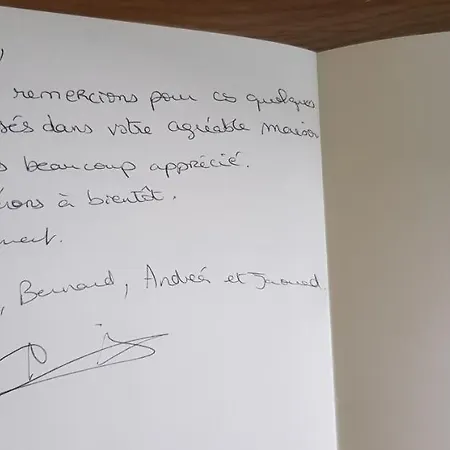 remercions pour ces quelques
sés dans votre agréable maison
s beaucoup apprécié.
rons à bientôt.
ment.
, Bernard, Andréa et Jaouad.